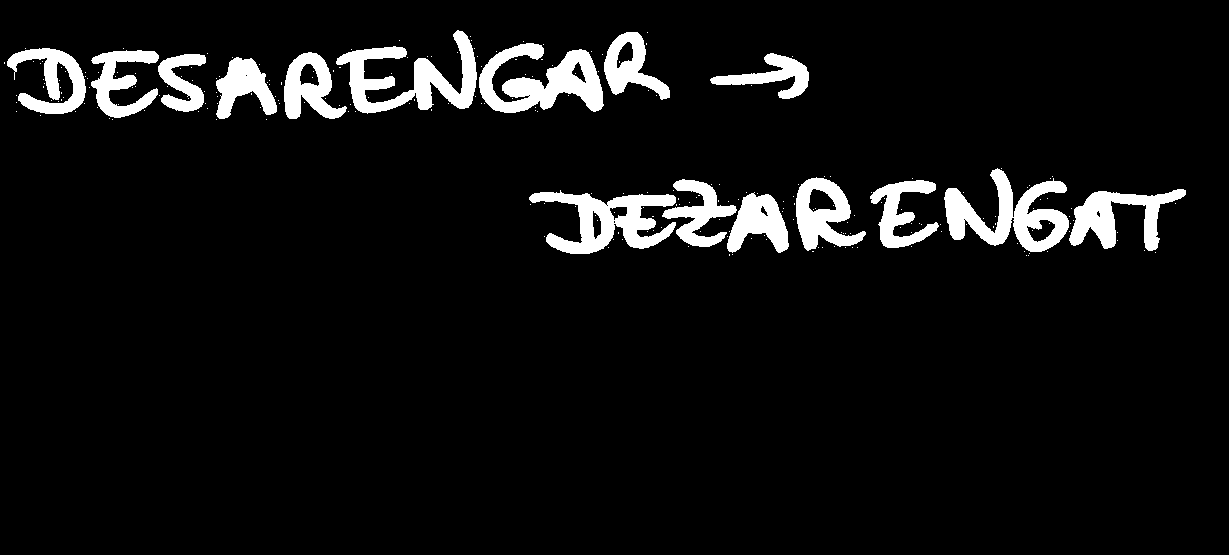 DESARENGAR →
DEZARENGAT